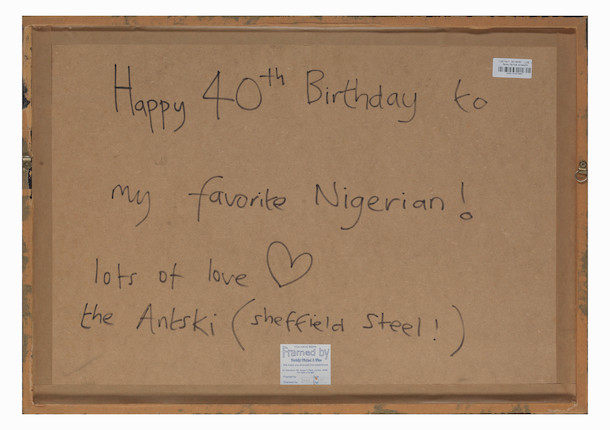 Happy 40th Birthday to
my favorite Nigerian!
lots of love ♡
the Antski (sheffield steel!)
Framed by